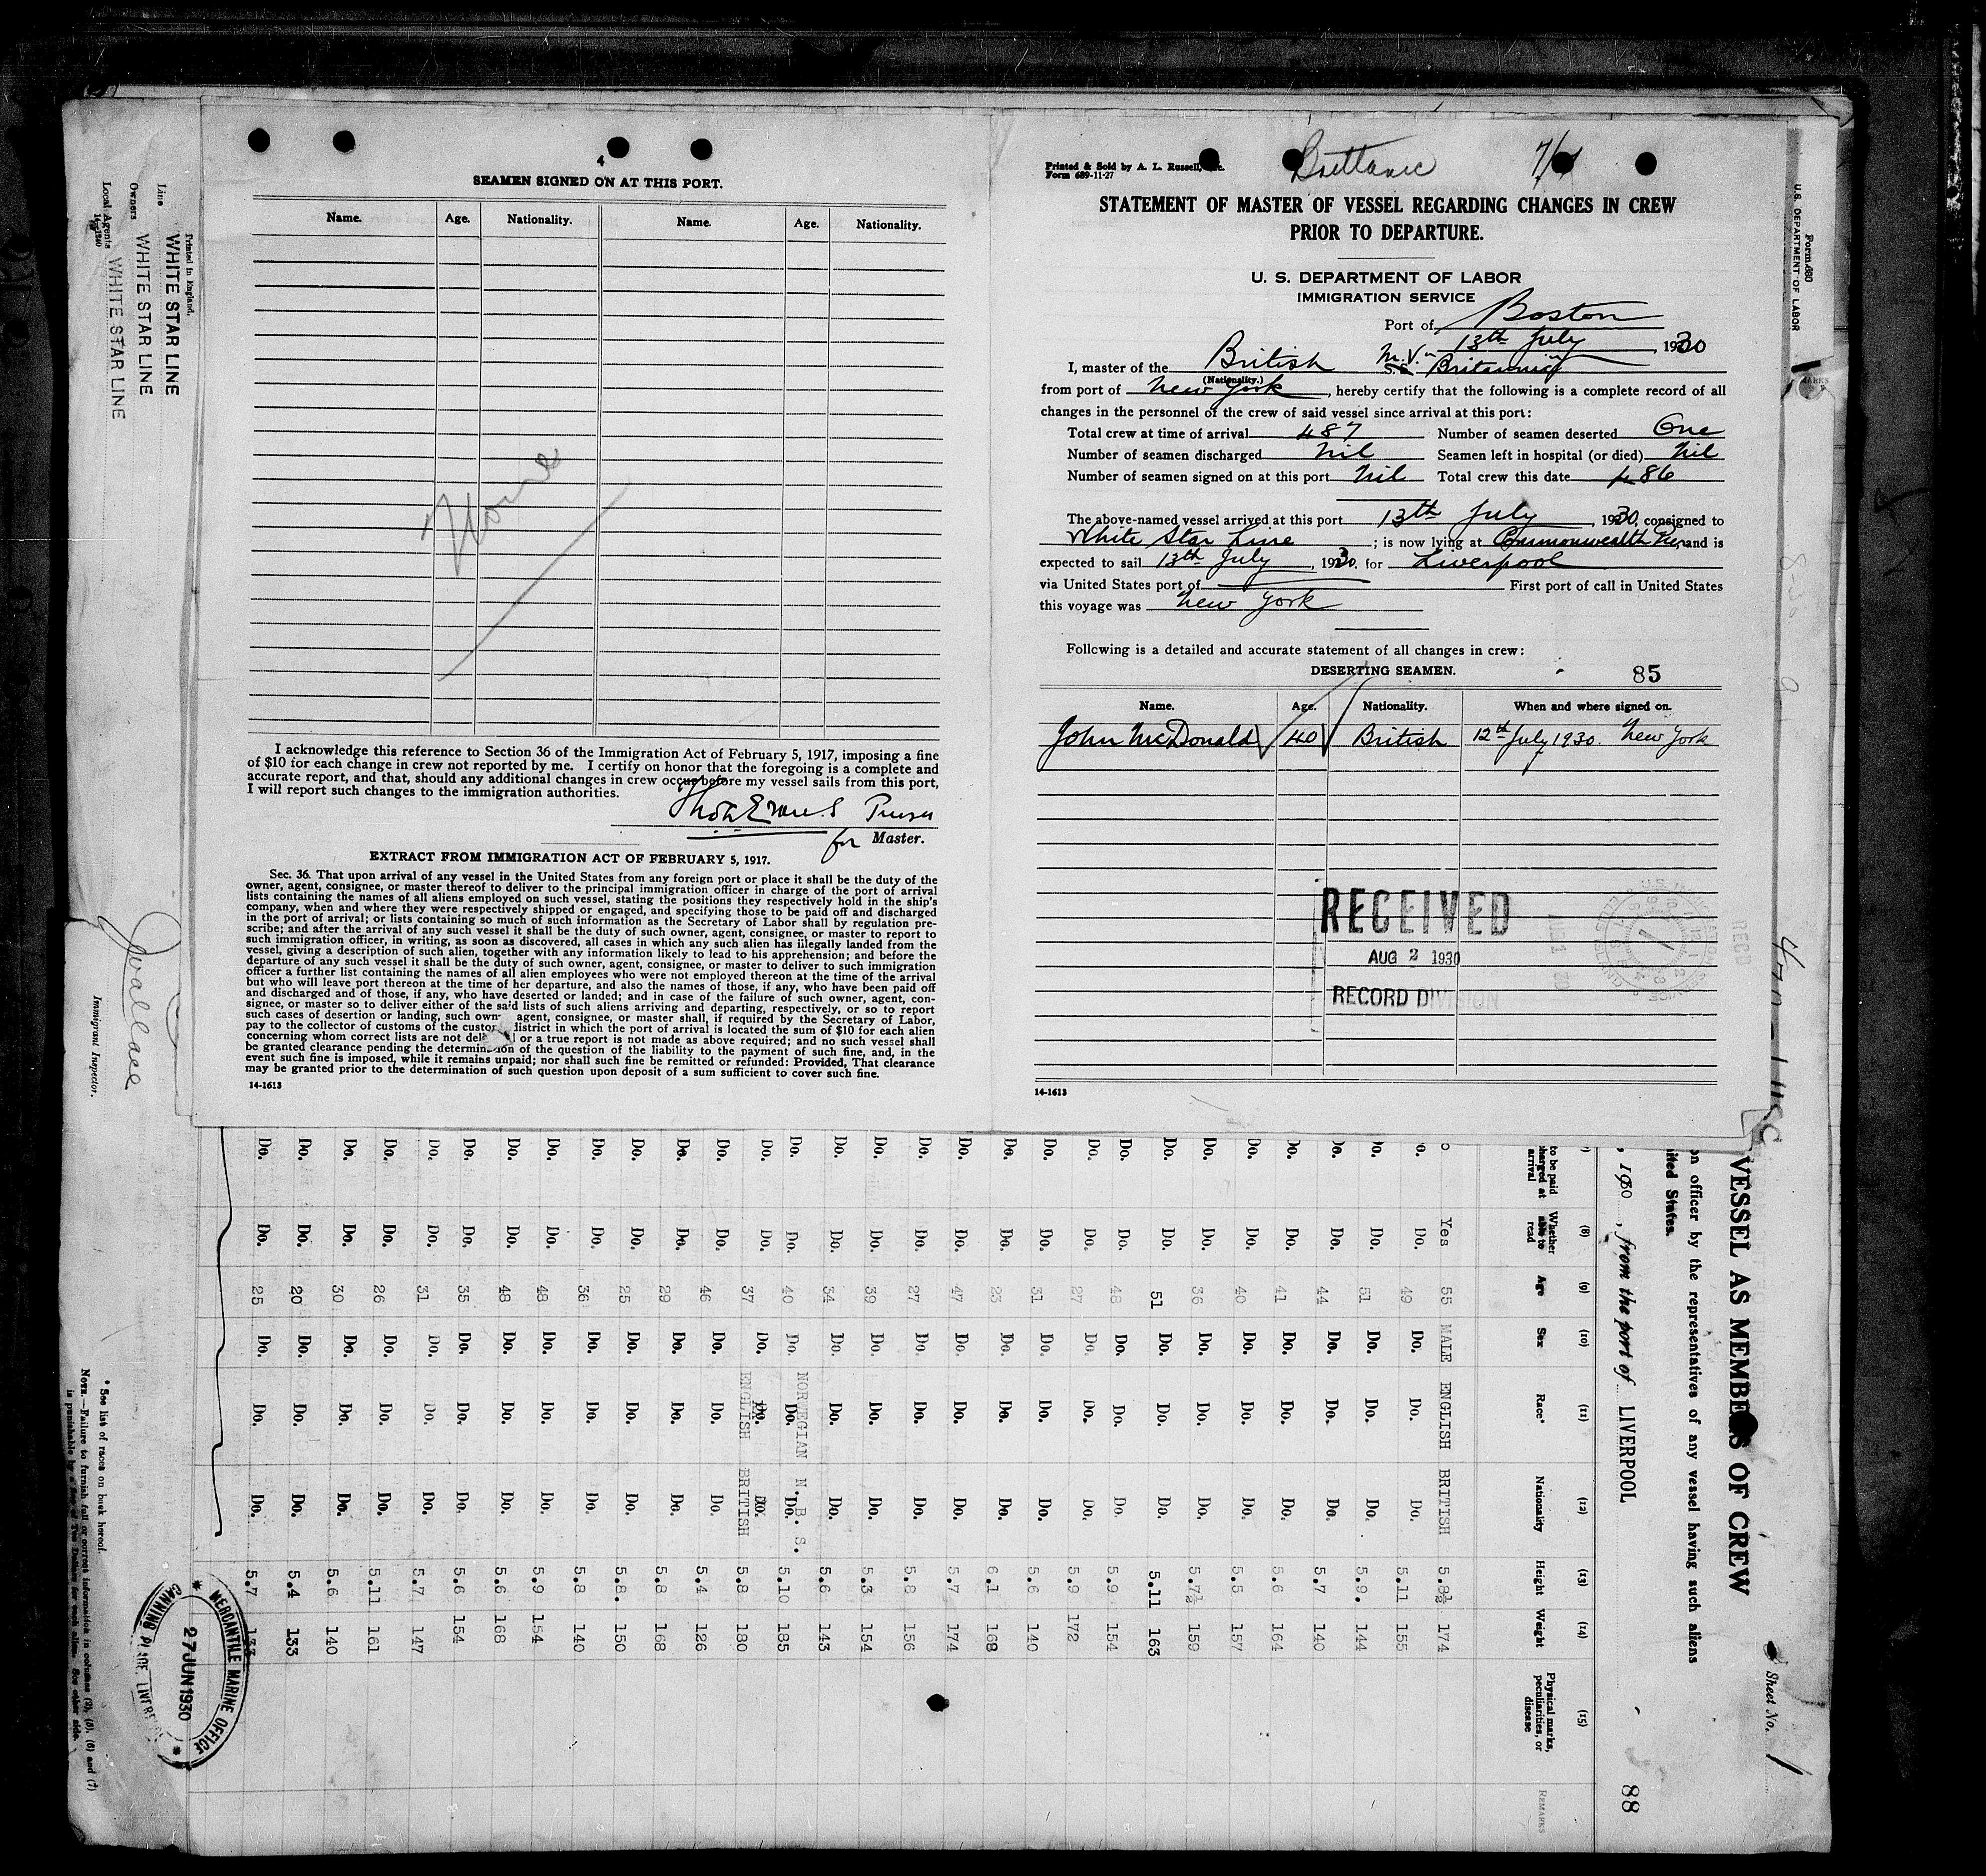 4
SEAMEN SIGNED ON AT THIS PORT.
Name. Age. Nationality. Name. Age. Nationality.
None
I acknowledge this reference to Section 36 of the Immigration Act of February 5, 1917, imposing a fine
of $10 for each change in crew not reported by me. I certify on honor that the foregoing is a complete and
accurate report, and that, should any additional changes in crew occur before my vessel sails from this port,
I will report such changes to the immigration authorities.
Thos Evans Purser
for Master.
EXTRACT FROM IMMIGRATION ACT OF FEBRUARY 5, 1917.
Sec. 36. That upon arrival of any vessel in the United States from any foreign port or place it shall be the duty of the
owner, agent, consignee, or master thereof to deliver to the principal immigration officer in charge of the port of arrival
lists containing the names of all aliens employed on such vessel, stating the positions they respectively hold in the ship's
company, when and where they were respectively shipped or engaged, and specifying those to be paid off and discharged
in the port of arrival; or lists containing so much of such information as the Secretary of Labor shall by regulation pre-
scribe; and after the arrival of any such vessel it shall be the duty of such owner, agent, consignee, or master to report to
such immigration officer, in writing, as soon as discovered, all cases in which any such alien has illegally landed from the
vessel, giving a description of such alien, together with any information likely to lead to his apprehension; and before the
departure of any such vessel it shall be the duty of such owner, agent, consignee, or master to deliver to such immigration
officer a further list containing the names of all alien employees who were not employed thereon at the time of the arrival
but who will leave port thereon at the time of her departure, and also the names of those, if any, who have been paid off
and discharged and of those, if any, who have deserted or landed; and in case of the failure of such owner, agent, con-
signee, or master so to deliver either of the said lists of such aliens arriving and departing, respectively, or so to report
such cases of desertion or landing, such own agent, consignee, or master shall, if required by the Secretary of Labor,
pay to the collector of customs of the custo district in which the port of arrival is located the sum of $10 for each alien
concerning whom correct lists are not deli or a true report is not made as above required; and no such vessel shall
be granted clearance pending the determination of the question of the liability to the payment of such fine, and, in the
event such fine is imposed, while it remains unpaid; nor shall such fine be remitted or refunded: Provided, That clearance
may be granted prior to the determination of such question upon deposit of a sum sufficient to cover such fine.
14-1613
Printed & Sold by A. L. Russell, Inc.
Form 689-11-27
Brittanic
STATEMENT OF MASTER OF VESSEL REGARDING CHANGES IN CREW
PRIOR TO DEPARTURE.
U. S. DEPARTMENT OF LABOR
IMMIGRATION SERVICE
Port of Boston
13th July, 1930
I, master of the British M.V. S.S. "Britannic"
(Nationality.)
from port of New York, hereby certify that the following is a complete record of all
changes in the personnel of the crew of said vessel since arrival at this port:
Total crew at time of arrival 487 Number of seamen deserted One
Number of seamen discharged Nil Seamen left in hospital (or died) Nil
Number of seamen signed on at this port Nil Total crew this date 486
The above-named vessel arrived at this port 13th July, 1930, consigned to
White Star Line; is now lying at Commonwealth Pier, and is
expected to sail 13th July, 1930. for Liverpool
via United States port of First port of call in United States
this voyage was New York
Following is a detailed and accurate statement of all changes in crew:
DESERTING SEAMEN. 85
Name. Age. Nationality. When and where signed on.
John McDonald 40 British 12th July 1930. New York
RECEIVED
AUG 2 1930
RECORD DIVISION
14-1613
Form 680
U. S. DEPARTMENT OF LABOR
VESSEL AS MEMBERS OF CREW
Sheet No. 1
on officer by the representatives of any vessel having such aliens
ited States.
, 1930, from the port of LIVERPOOL
88
to be paid
charged at
arrival
(8) Whether able to read
(9) Age
(10) Sex
(11) Race*
(12) Nationality
(13) Height
(14) Weight
(15) Physical marks, peculiarities, or disease
REMARKS
o Yes 55 MALE ENGLISH BRITISH 5.8½ 174
o. Do. 49 Do. Do. Do. 5.11 155
Do. Do. 51 Do. Do. Do. 5.9. 144
Do. Do. 44 Do. Do. Do. 5.7 140
Do. Do. 41 Do. Do. Do. 5.6 164
Do. Do. 40 Do. Do. Do. 5.5 157
Do. Do. 36 Do. Do. Do. 5.7½ 159
Do. Do. 51 Do. Do. Do. 5.11 163
Do. Do. 48 Do. Do. Do. 5.9 154
Do. Do. 27 Do. Do. Do. 5.9 172
Do. Do. 31 Do. Do. Do. 5.6 140
Do. Do. 23 Do. Do. Do. 6.1 168
Do. Do. 47 Do. Do. Do. 5.7 174
Do. Do. 27 Do. Do. Do. 5.8 156
Do. Do. 39 Do. Do. Do. 5.3 154
Do. Do. 34 Do. Do. Do. 5.6 143
Do. Do. 40 Do. NORWEGIAN Do. N. B. S. Do. 5.10 185
Do. Do. 37 Do. ENGLISH BRITISH 5.8 180
Do. Do. 46 Do. Do. Do. 5.4 126
Do. Do. 29 Do. Do. Do. 5.8 168
Do. Do. 25 Do. Do. Do. 5.8. 150
Do. Do. 36 Do. Do. Do. 5.8 140
Do. Do. 48 Do. Do. Do. 5.9 154
Do. Do. 48 Do. Do. Do. 5.6 168
Do. Do. 35 Do. Do. Do. 5.6 154
Do. Do. 31 Do. Do. Do. 5.7 147
Do. Do. 26 Do. Do. Do. 5.11 161
Do. Do. 30 Do. Do. Do. 5.6 140
Do. Do. 20 Do. Do. Do. 5.4 133
Do. Do. 25 Do. Do. Do. 5.7 133
Printed in England.
Line WHITE STAR LINE
Owners WHITE STAR LINE
Local Agents WHITE STAR LINE
Immigrant Inspector.
* See list of races on back hereof.
NOTE.—Failure to furnish full or correct information in columns (2), (5), (6) and (7)
is punishable by a fine of Ten Dollars for each alien. See other side.
MERCANTILE MARINE OFFICE
27 JUN 1930
CANNING PLACE, LIVERPOOL